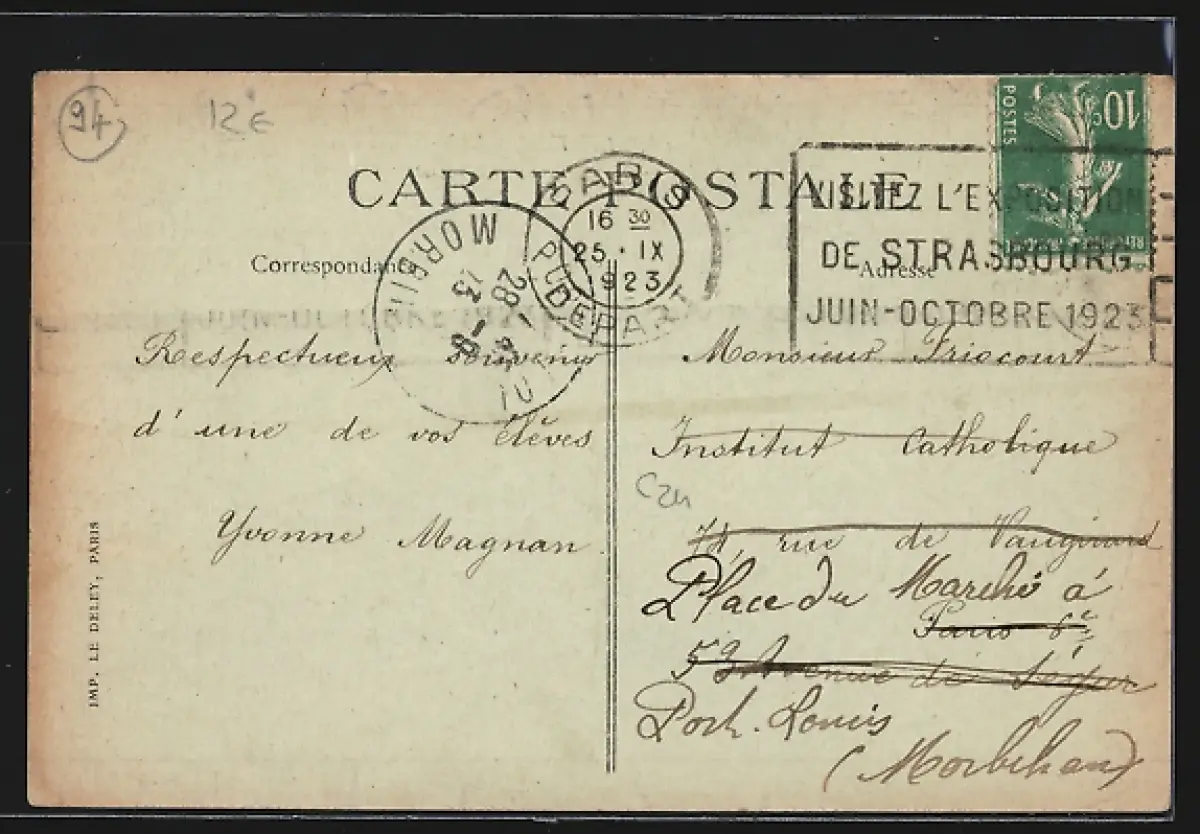 94
12€
POSTES
10c
CARTE POSTALE
PARIS
16 30
25 · IX
1923
DEPART
VISITEZ L'EXPOSITION
DE STRASBOURG
JUIN-OCTOBRE 1923
MORBIHAN
28 -
13
Correspondance
Adresse
Respectueux souvenir
d'une de vos élèves
Yvonne Magnan.
Monsieur Friocourt
Institut Catholique
74, rue de Vaugirard
Place du Marché à
Paris 6e
52 Avenue de Ségur
Port-Louis
(Morbihan)
IMP. LE DELEY, PARIS